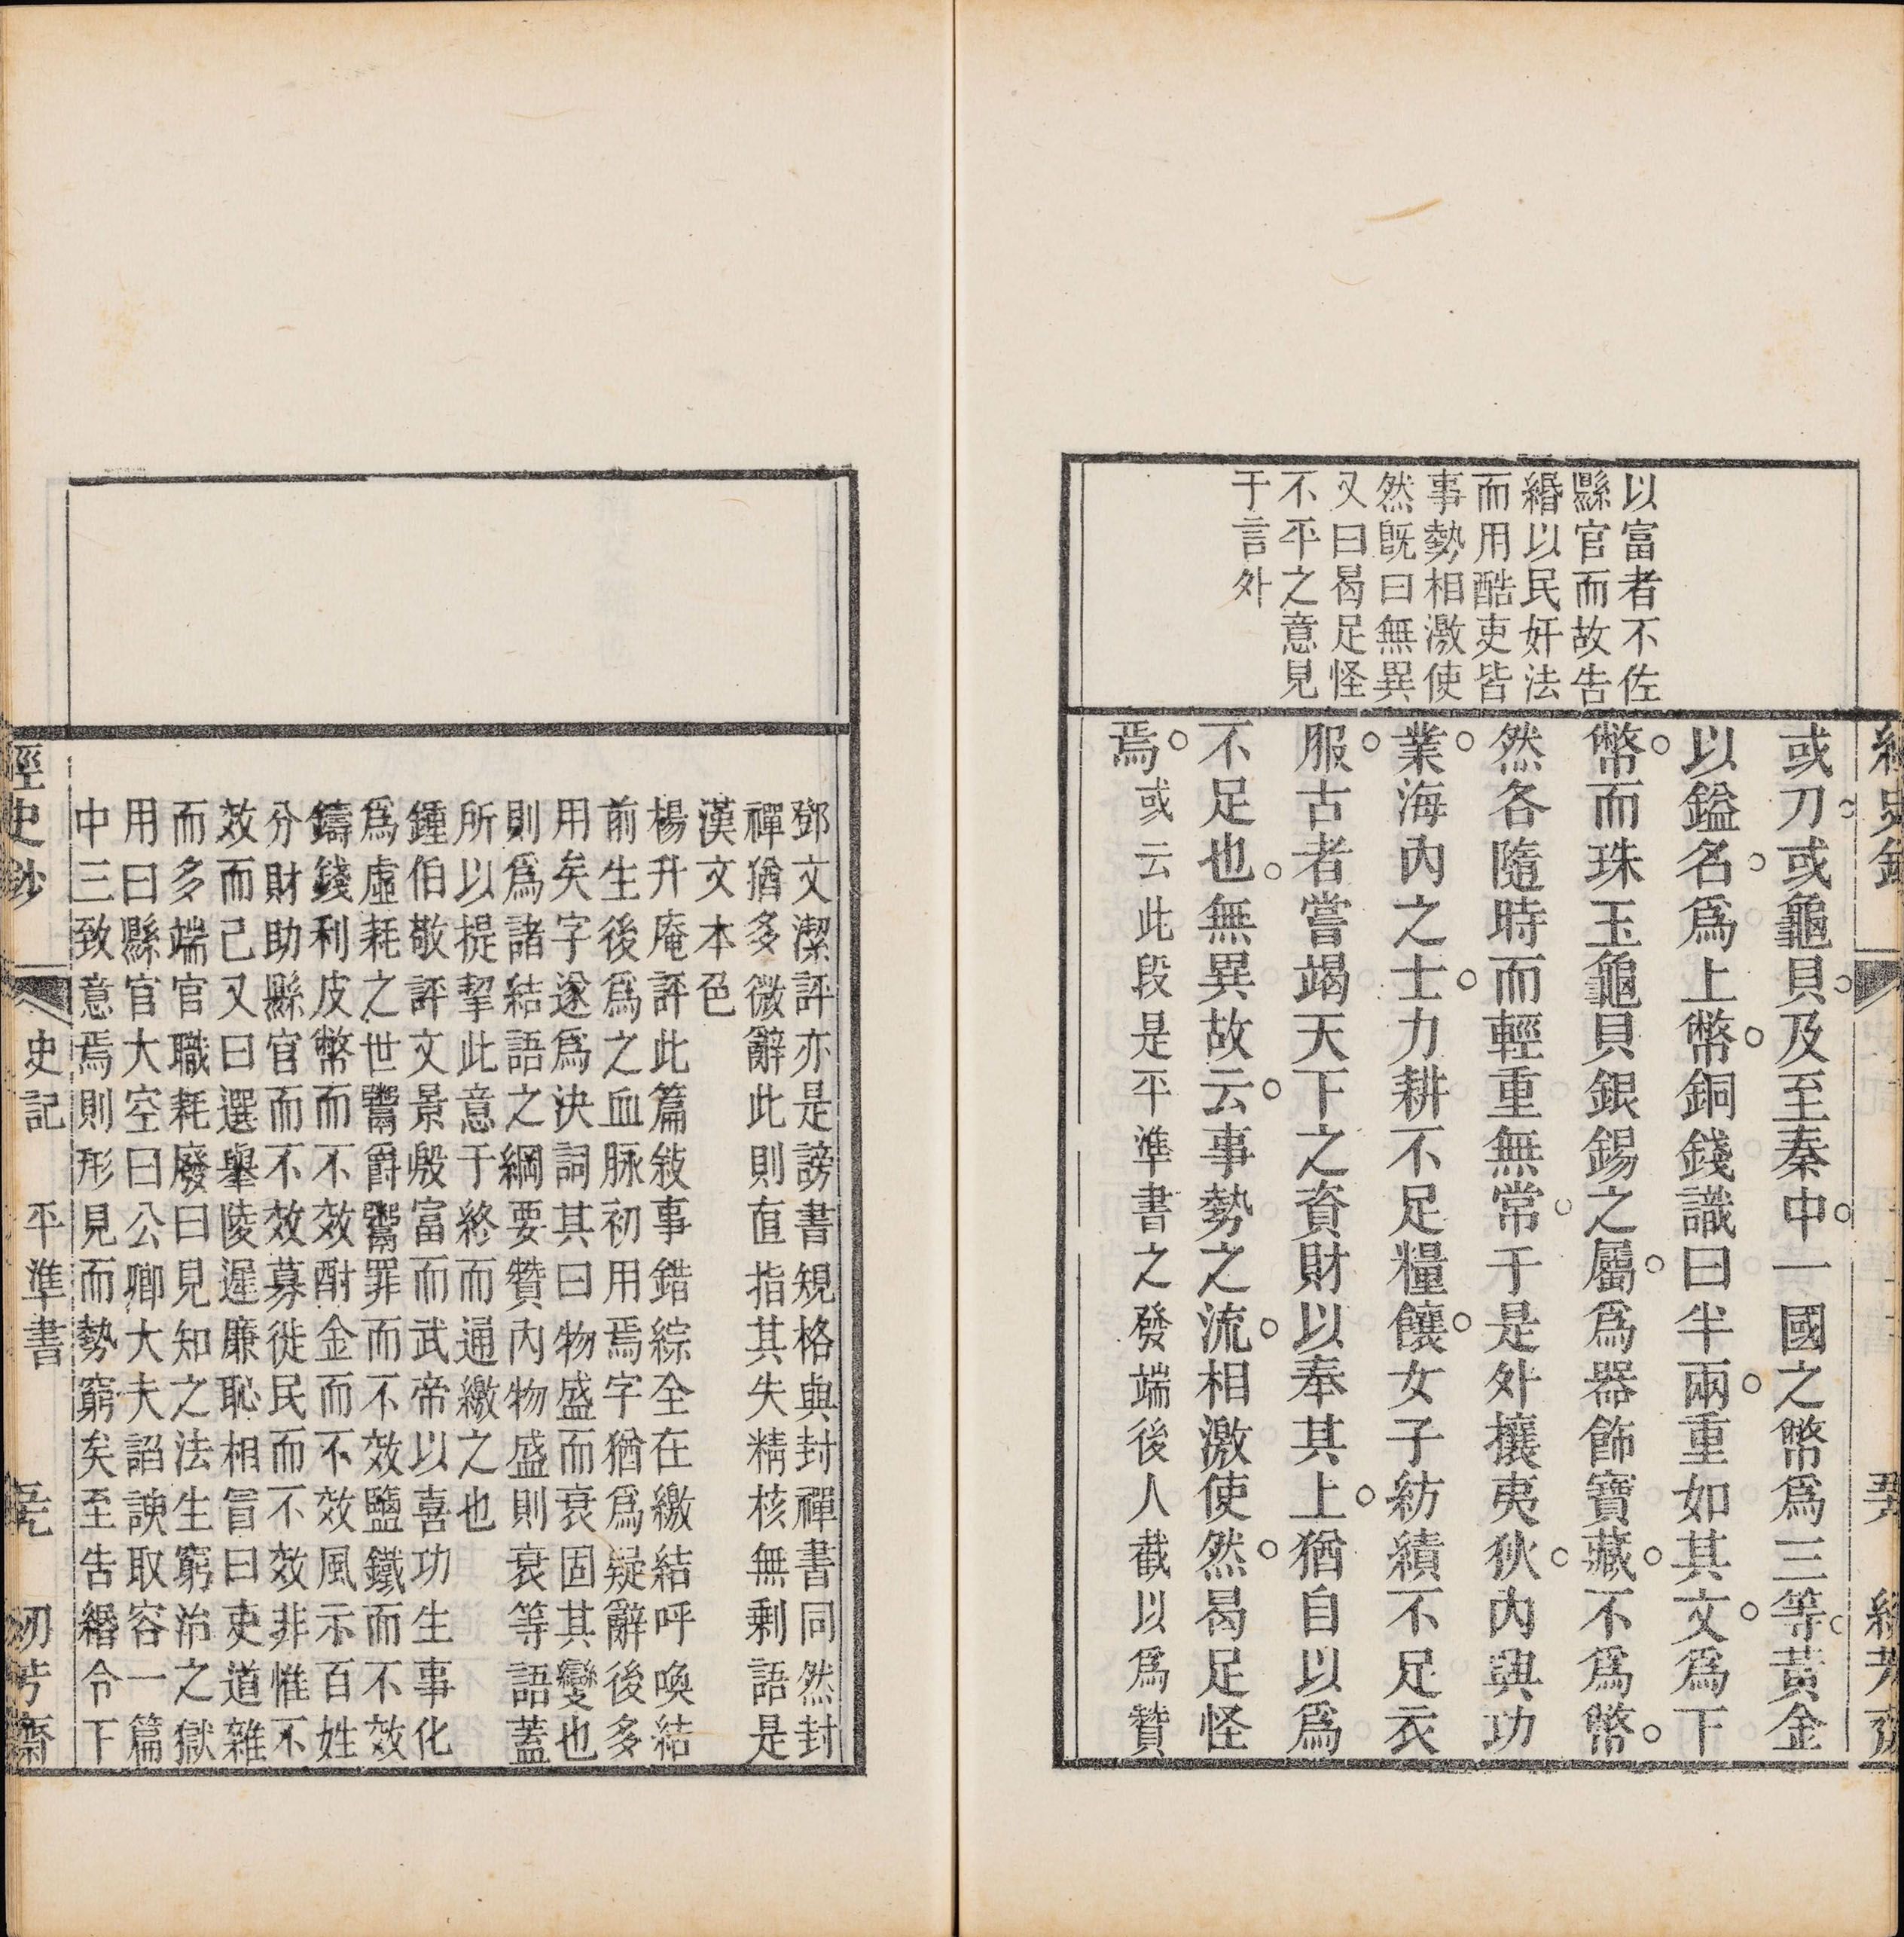 以富者不佐
縣官而故告
緡以民奸法
而用酷吏皆
事勢相激使
然既曰無異
又曰曷足怪
不平之意見
于言外
或刀或龜貝及至秦中一國之幣爲三等黃金
以鎰名爲上幣銅錢識曰半兩重如其文爲下
幣而珠玉龜貝銀錫之屬爲器飾寶藏不爲幣
然各隨時而輕重無常于是外攘夷狄內興功
業海內之士力耕不足糧饟女子紡績不足衣
服古者嘗竭天下之資財以奉其上猶自以爲
不足也無異故云事勢之流相激使然曷足怪
焉或云此段是平準書之發端後人截以爲贊
鄧文潔評亦是謗書規格與封禪書同然封
禪猶多微辭此則直指其失精核無剩語是
漢文本色
楊升庵評此篇敍事錯綜全在繳結呼喚結
前生後爲之血脉初用焉字猶爲疑辭後多
用矣字遂爲決詞其曰物盛而衰固其變也
則爲諸結語之綱要贊內物盛則衰等語蓋
所以提挈此意于終而通繳之也
鍾伯敬評文景殷富而武帝以喜功生事化
爲虛耗之世鬻爵鬻罪而不效鹽鐵而不效
鑄錢利皮幣而不效酎金而不效風示百姓
分財助縣官而不效募徙民而不效非惟不
效而己又曰選舉陵遲廉恥相冒曰吏道雜
而多端官職耗廢曰見知之法生窮治之獄
用曰縣官大空曰公卿大夫諂諛取容一篇
中三致意焉則形見而勢窮矣至告緡令下
經史鈔
史記　平準書